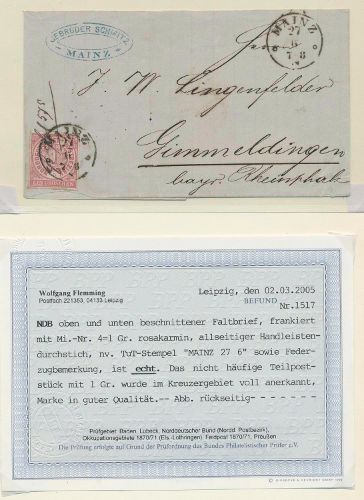 GEBRÜDER SCHMITZ
MAINZ
MAINZ
27
6
7 8
Herrn
J. W. Lingenfelder
Gimmeldingen
bayr. Rheinpfalz
MAINZ
Wolfgang Flemming
Postfach 221353, 04133 Leipzig
Leipzig, den 02.03.2005
BEFUND
Nr.1517
NDB oben und unten beschnittener Faltbrief, frankiert
mit Mi.-Nr. 4=1 Gr. rosakarmin, allseitiger Handleisten-
durchstich, nv. TvT-Stempel "MAINZ 27 6" sowie Feder-
zugbemerkung, ist echt. Das nicht häufige Teilpost-
stück mit 1 Gr. wurde im Kreuzergebiet voll anerkannt.
Marke in guter Qualität.-- Abb. rückseitig-------
Prüfgebiet Baden, Lübeck, Norddeutscher Bund (Nordd. Postbezirk),
Okkupationsgebiete 1870/71 (Els.-Lothringen) Feldpost 1870/71, Preußen
Die Prüfung erfolgte auf Grund der Prüfordnung des Bundes Philatelistischer Prüfer e.V.